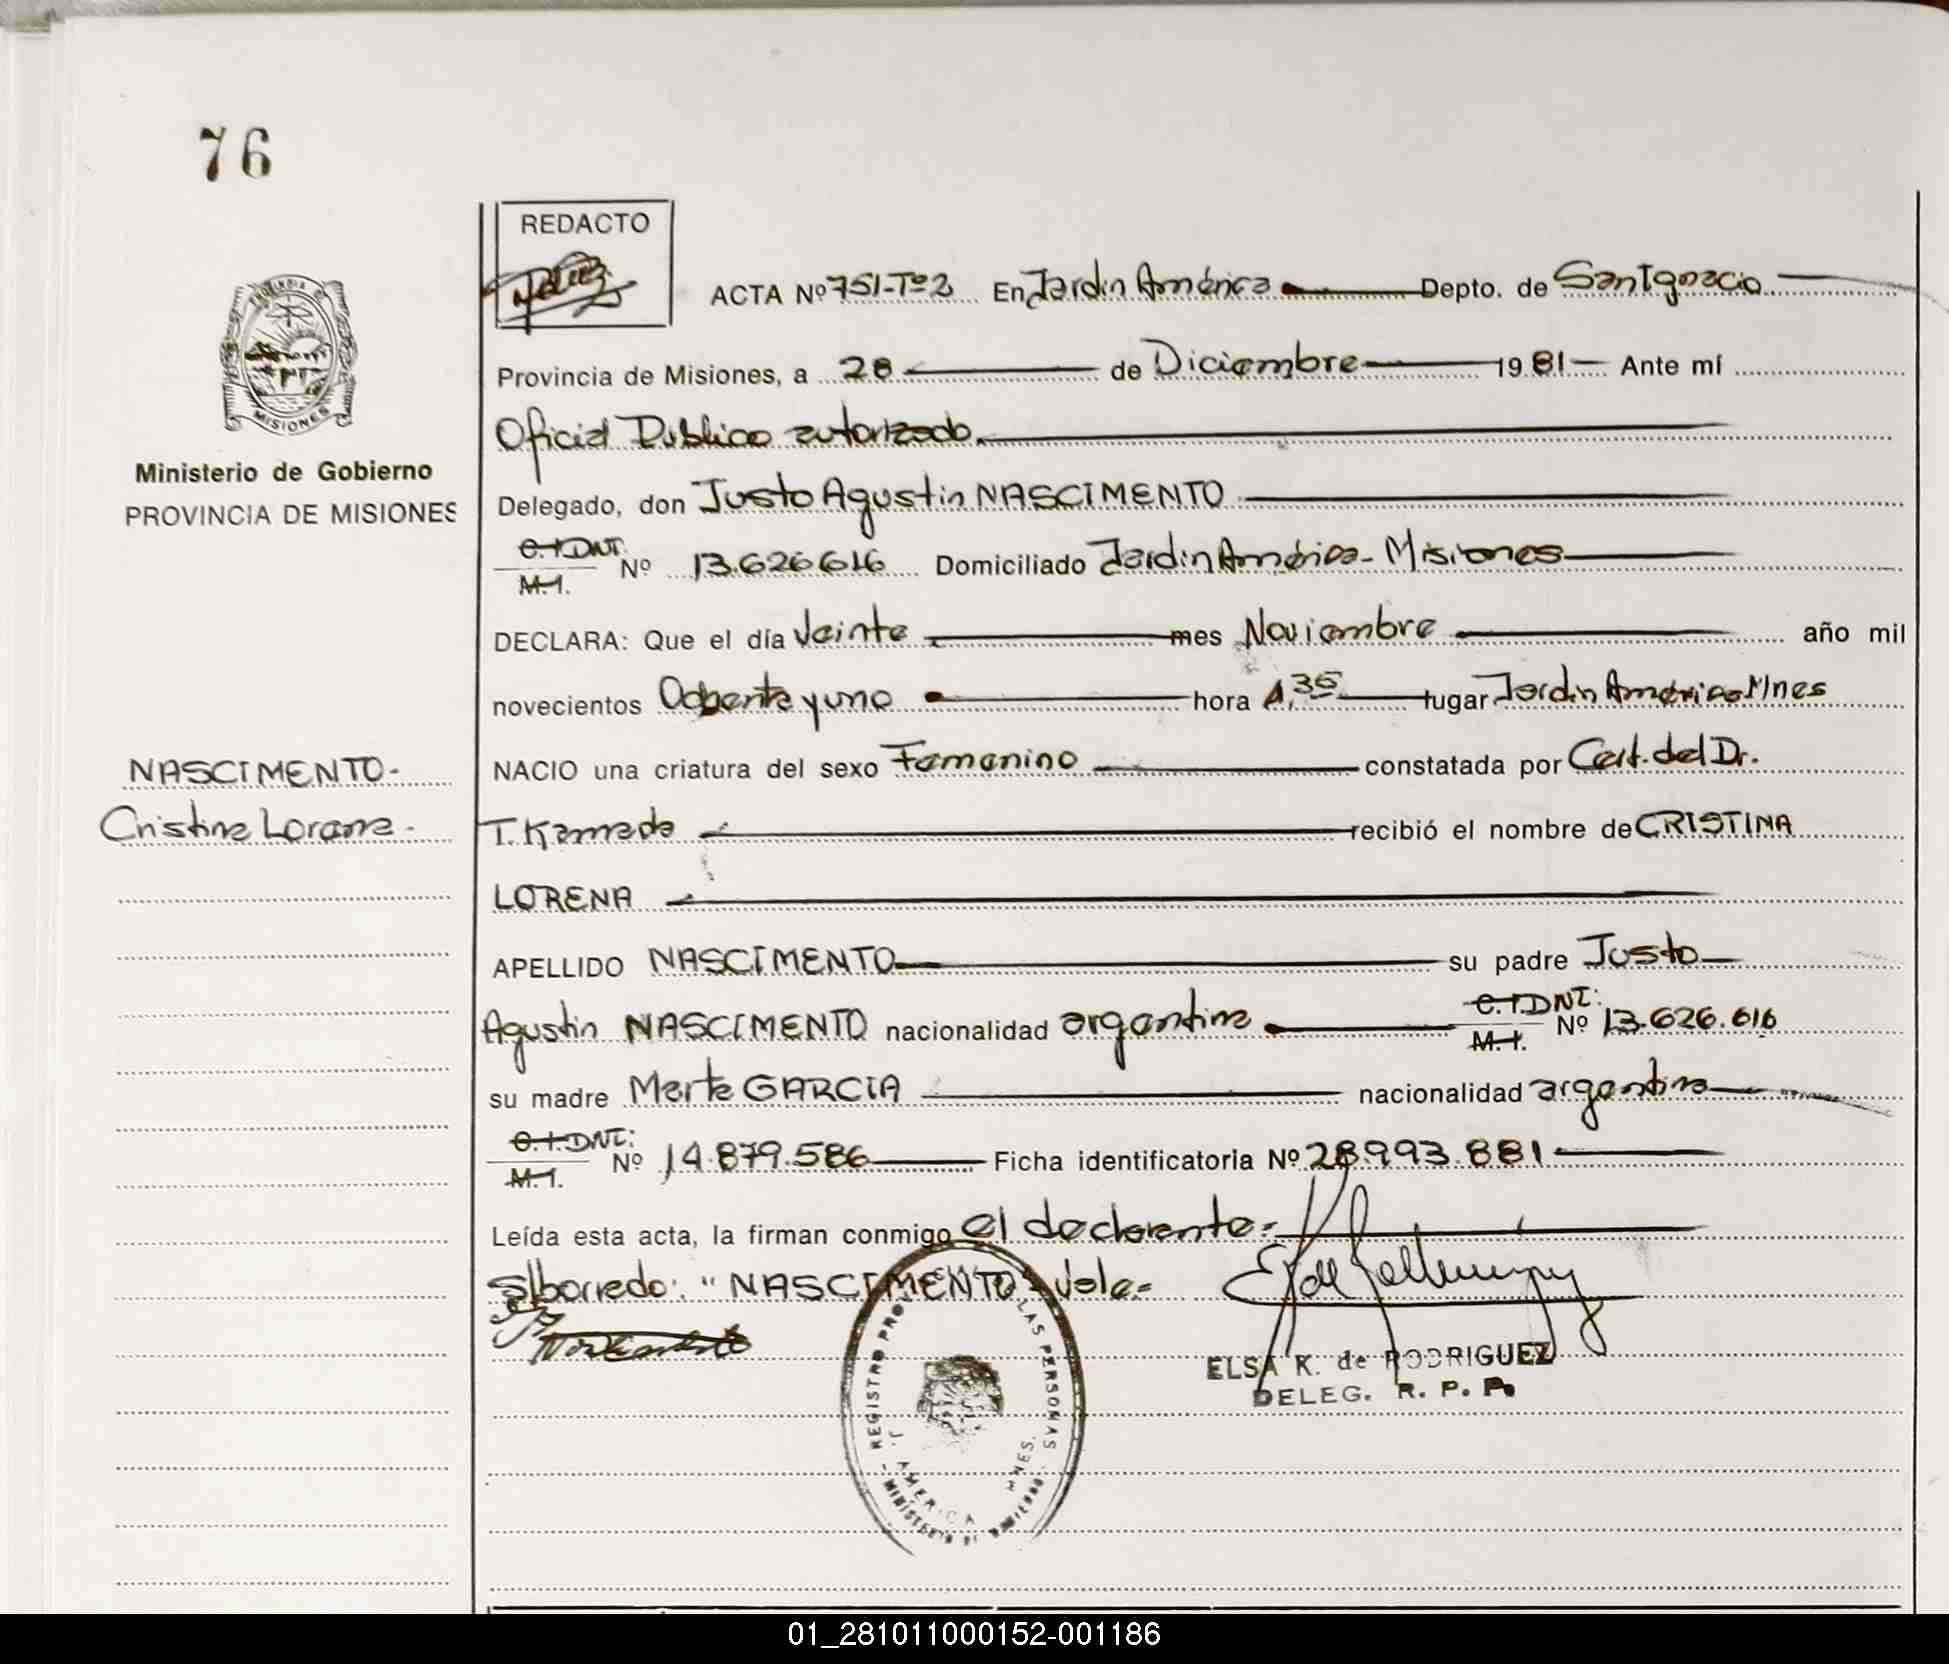 76
REDACTO
ACTA Nº 751-Tº2 En Jardin América Depto. de San Ignacio
Provincia de Misiones, a 28 de Diciembre 1981 Ante mí
Oficial Publico autorizado
Ministerio de Gobierno
PROVINCIA DE MISIONES
Delegado, don Justo Agustin NASCIMENTO
C.I. DNI. M.I. Nº 13.626.616 Domiciliado Jardin América - Misiones
DECLARA: Que el día Veinte mes Noviembre año mil
novecientos Ochenta y uno hora 1,35 lugar Jardin América Mnes
NASCIMENTO-
NACIO una criatura del sexo Femenino constatada por Cert. del Dr.
Cristina Lorena-
T. Kameda recibió el nombre de CRISTINA
LORENA
APELLIDO NASCIMENTO su padre Justo
Agustin NASCIMENTO nacionalidad argentina C.I. DNI: M.I. Nº 13.626.616
su madre Marta GARCIA nacionalidad argentina
C.I. DNI: M.I. Nº 14.879.586 Ficha identificatoria Nº 28.993.881
Leída esta acta, la firman conmigo el declarante-
S/borrado: "NASCIMENTO" Vale-
ELSA K. de RODRIGUEZ
DELEG. R. P. P.
REGISTRO PRO LAS PERSONAS
J. AMERICA MNES.
MINISTERIO DE GOBIERNO
MISIONES
01_281011000152-001186